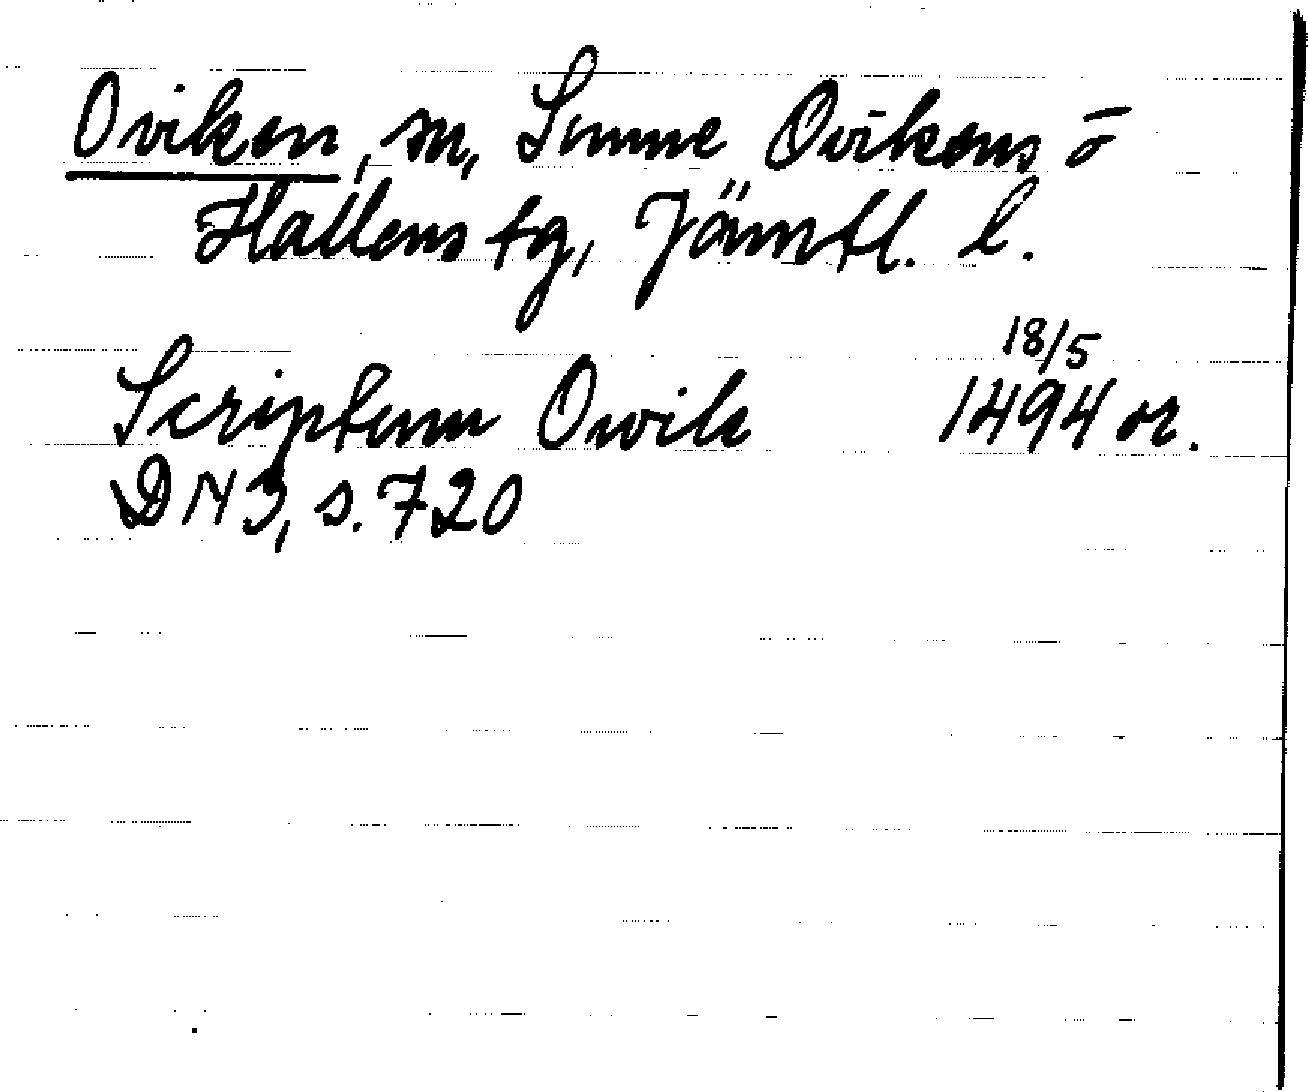 Oviken, sn, Sunne Ovikens o
Hallens tg, Jämtl. l.
18/5
Scriptum Owik 1494 or.
DN 3, s. 720